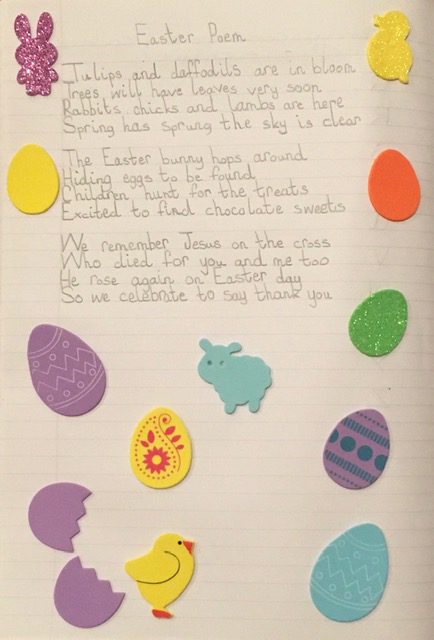 Easter Poem
Tulips and daffodils are in bloom
Trees will have leaves very soon
Rabbits chicks and lambs are here
Spring has sprung the sky is clear
The Easter bunny hops around
Hiding eggs to be found
Children hunt for the treats
Excited to find chocolate sweets
We remember Jesus on the cross
Who died for you and me too
He rose again on Easter day
So we celebrate to say thank you